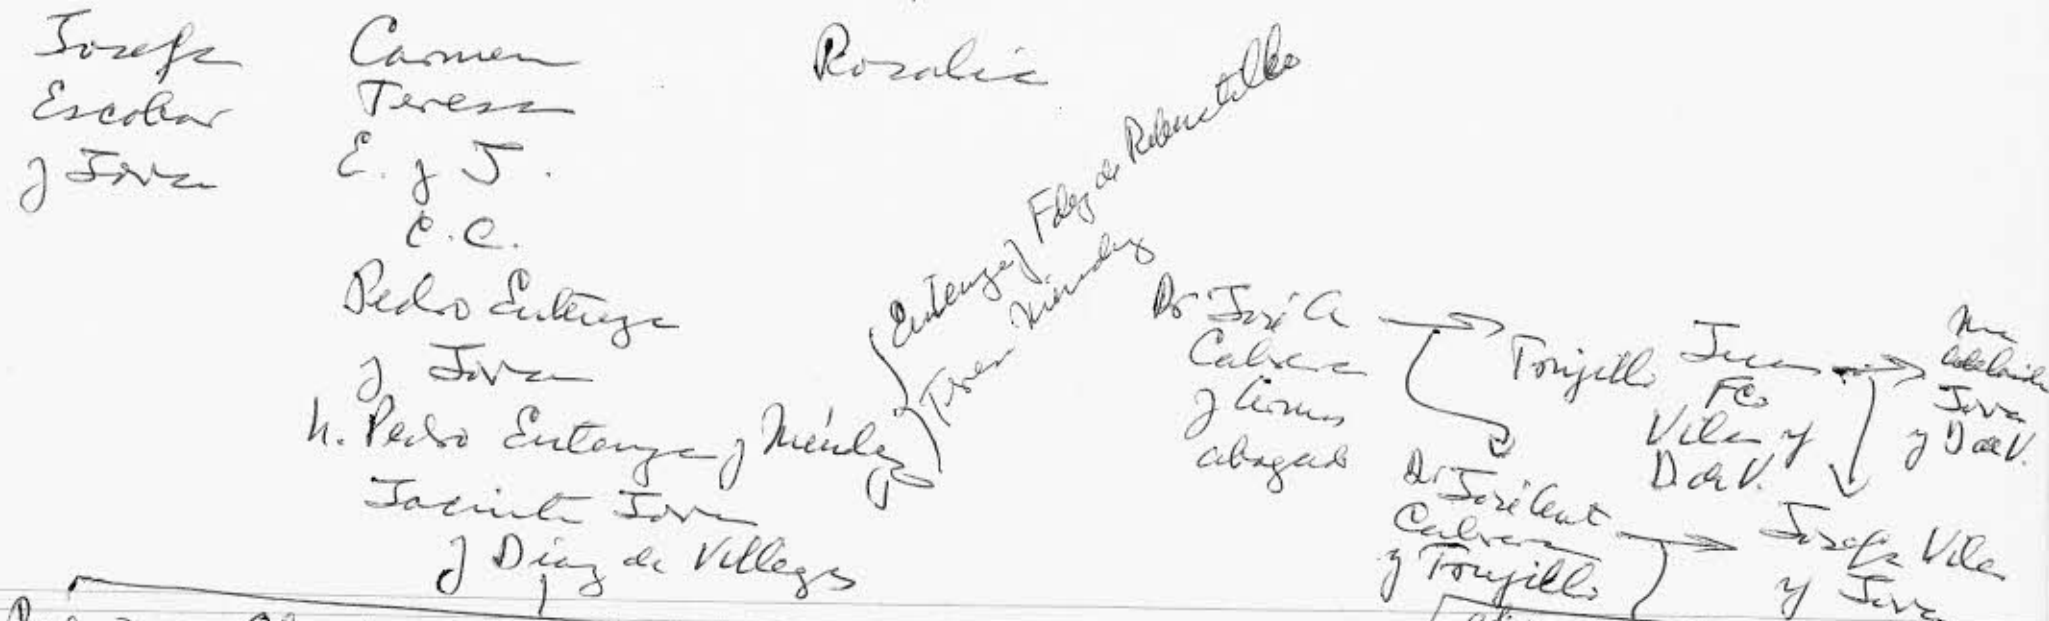 Josefa
Escobar
y Jova
Carmen
Teresa
E. y J.
C.C.
Pedro Entenza
y Jova
h. Pedro Entenza y Méndez
Jacinta Jova
y Díaz de Villegas
Rosalia
Entenza y Fdez de Rebustillo
Teresa Méndez
Dr José A
Cabrera
y
abogado
Trujillo
Dr José Ant
Cabrera
y Trujillo
Juan
Fco
Vila y
D. de V.
Ma
Adelaida
Jova
y D de V.
Josefa Vila
y Jova